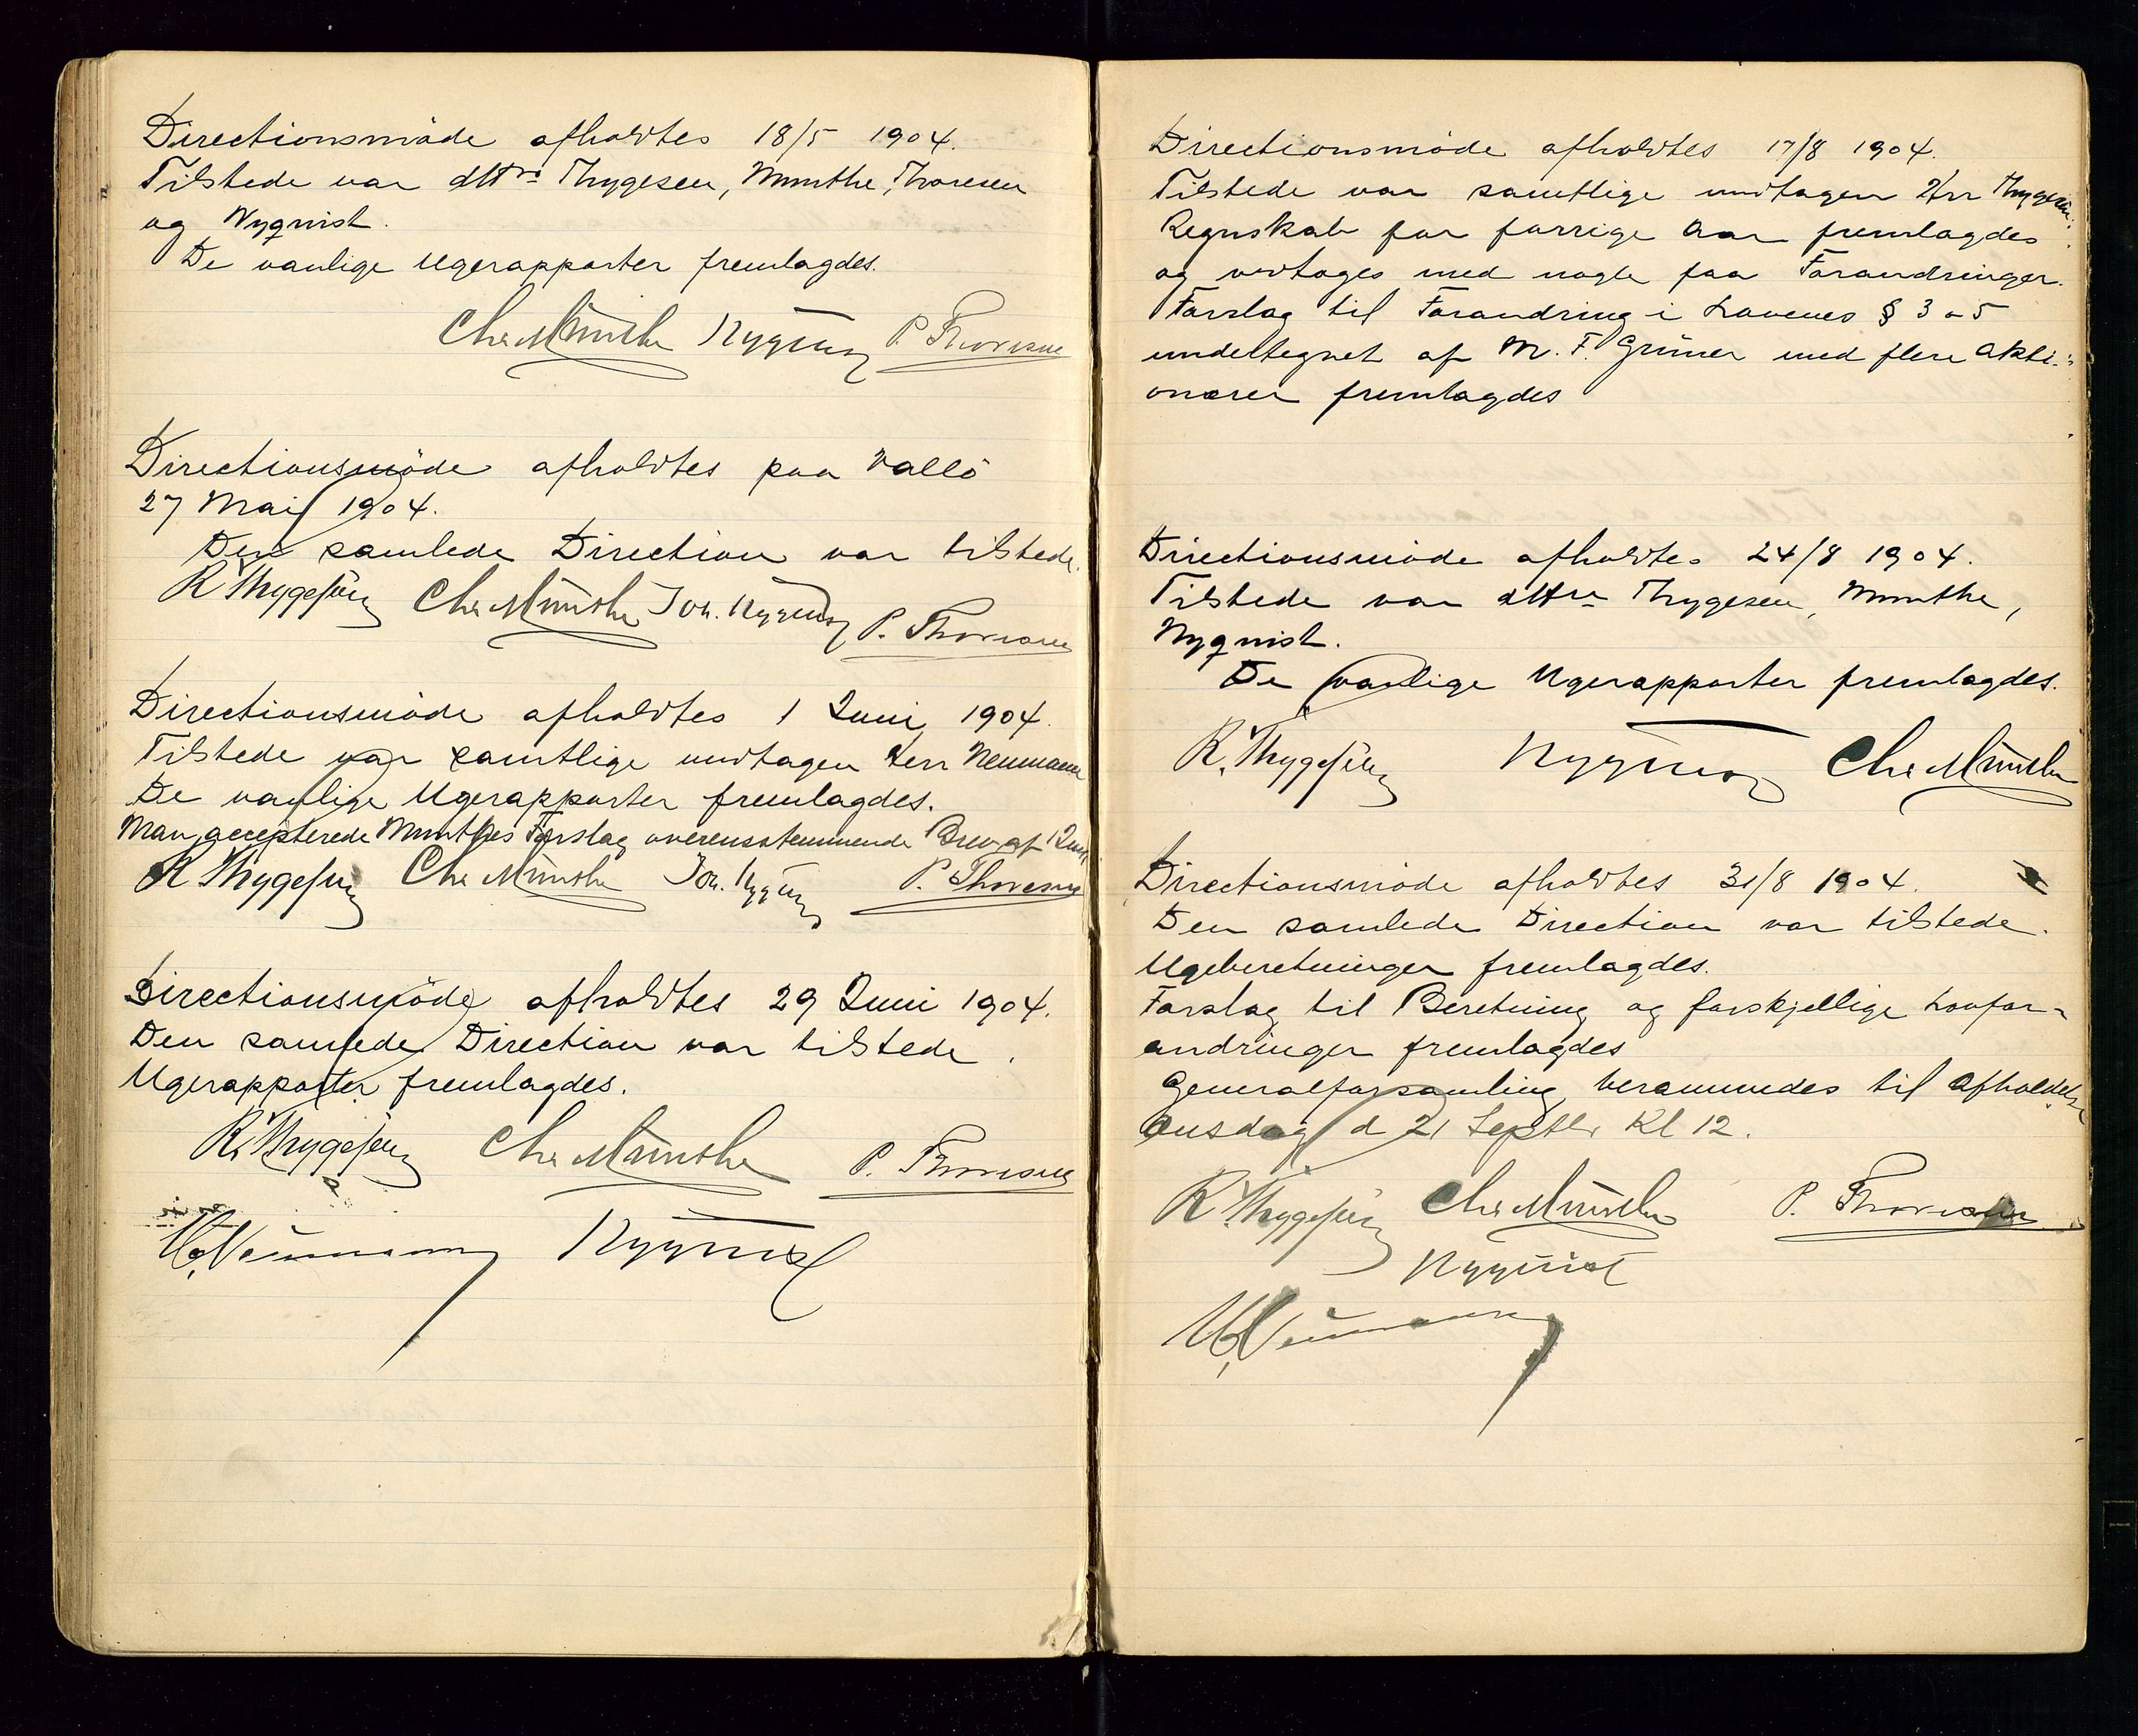 Directionsmöde afholdtes 18/5 1904.
Tilstede var Thygesen, Munthe, Thoresen
og Nyqvist.
De vanlige Ugerapporter fremlagdes.
Chr Munthe Nyqvist P. Thoresen
Directionsmöde afholdtes paa Vallö
27 Mai 1904.
Den samlede Direction var tilstede.
R Thygesen Chr Munthe Joh. Nyqvist P. Thoresen
Directionsmöde afholdtes 1 Juni 1904.
Tilstede var samtlige undtagen Herr Neumann
De vanlige Ugerapporter fremlagdes.
Man accepterede Munthes Forslag overensstemmende Brev af 1 Juni
R Thygesen Chr Munthe Joh. Nyqvist P. Thoresen
Directionsmöde afholdtes 29 Juni 1904.
Den samlede Direction var tilstede.
Ugerapporter fremlagdes.
R. Thygesen Chr Munthe P. Thoresen
Neumann Nyqvist
Directionsmöde afholdtes 17/8 1904.
Tilstede var samtlige undtagen Hrr Thygesen.
Regnskab for forrige Aar fremlagdes
og vedtoges med nogle faa Forandringer.
Forslag til Forandring i Lovenes § 3 o 5
undertegnet af M. F. Grüner med flere Akti-
onærer fremlagdes
Directionsmöde afholdtes 24/8 1904.
Tilstede var Thygesen, Munthe,
Nyqvist.
De vanlige Ugerapporter fremlagdes.
R. Thygesen Nyqvist Chr Munthe
Directionsmöde afholdtes 31/8 1904.
Den samlede Direction var tilstede.
Ugeberetninger fremlagdes.
Forslag til Beretning og forskjellige Lovfor-
andringer fremlagdes
Generalforsamling berammedes til Afholdelse
Onsdag d 21 Septbr Kl 12.
R. Thygesen Chr Munthe P. Thoresen
Nyqvist
Neumann